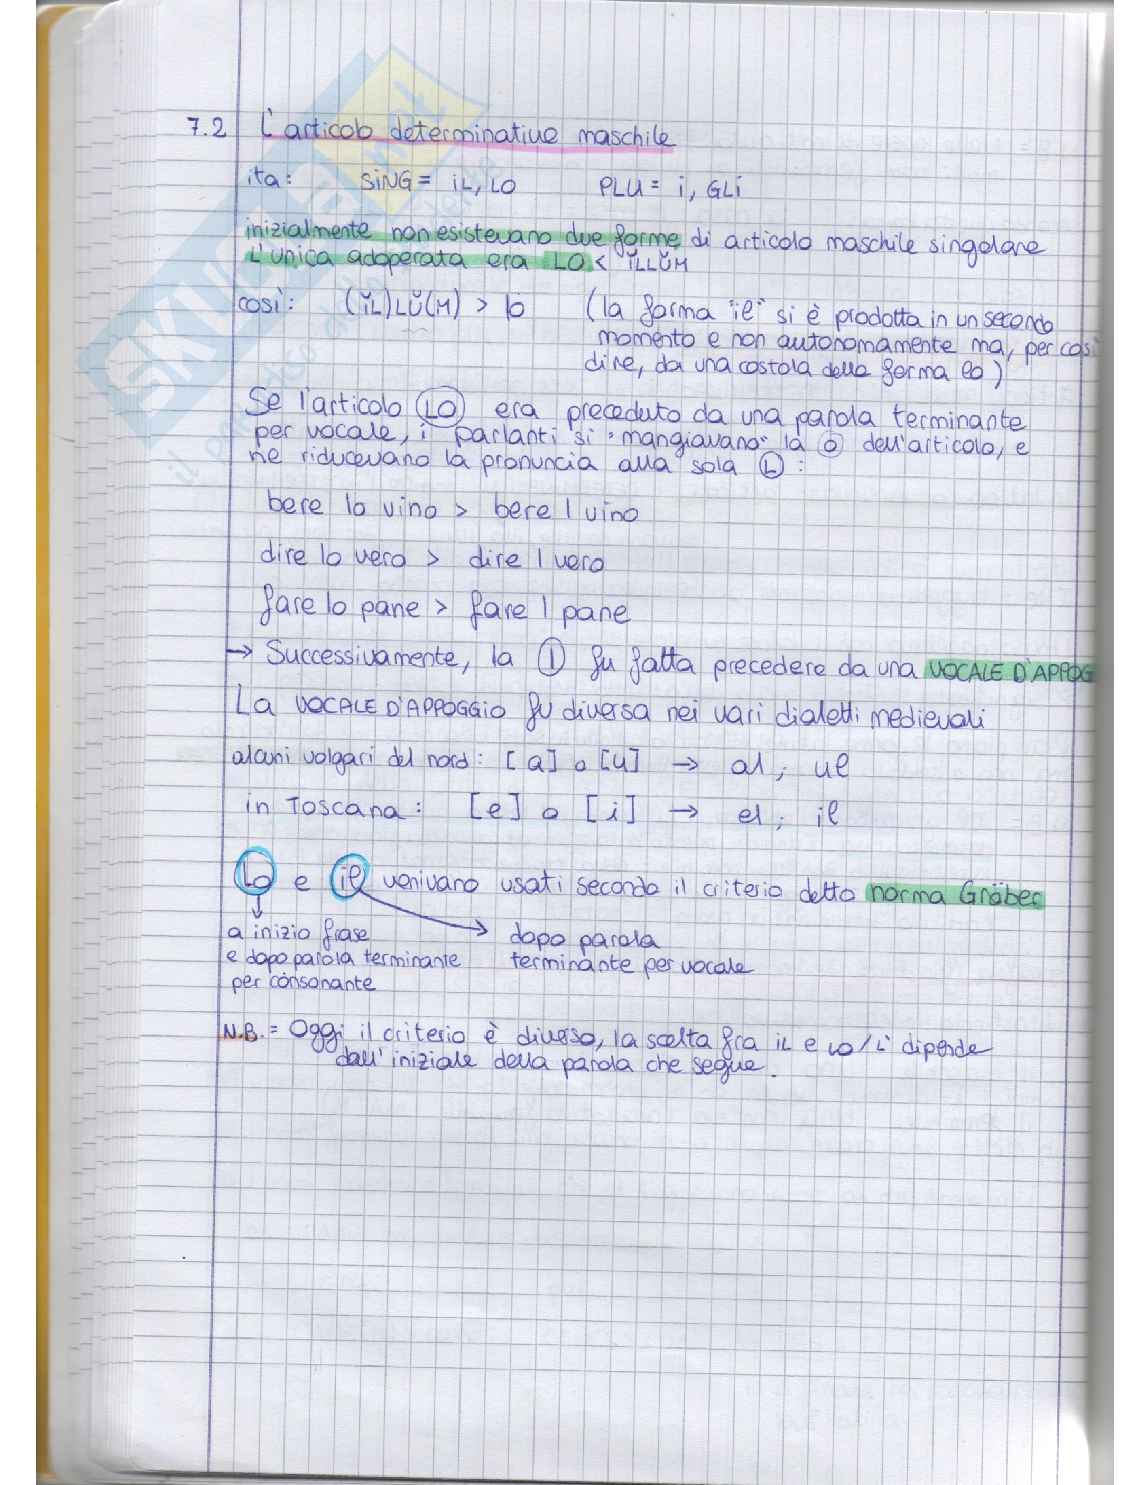 7.2 L'articolo determinativo maschile
ita: SiNG = iL, LO PLU = i, GLi
inizialmente non esistevano due forme di articolo maschile singolare
L'unica adoperata era LO < ĭLLŬM
così: (ĭL)LŬ(M) > lo (la forma "il" si è prodotta in un secondo
momento e non autonomamente ma, per così
dire, da una costola della forma lo)
Se l'articolo LO era preceduto da una parola terminante
per vocale, i parlanti si "mangiavano" la o dell'articolo, e
ne riducevano la pronuncia alla sola L:
bere lo vino > bere l vino
dire lo vero > dire l vero
fare lo pane > fare l pane
→ Successivamente, la l fu fatta precedere da una VOCALE D'APPOG
La VOCALE D'APPOGGIO fu diversa nei vari dialetti medievali
alcuni volgari del nord: [a] o [u] → al; ul
in Toscana: [e] o [i] → el; il
Lo e il venivano usati secondo il criterio detto norma Gröber
a inizio frase → dopo parola
e dopo parola terminante terminante per vocale
per consonante
N.B. = Oggi il criterio è diverso, la scelta fra iL e LO/L' dipende
dall'iniziale della parola che segue.